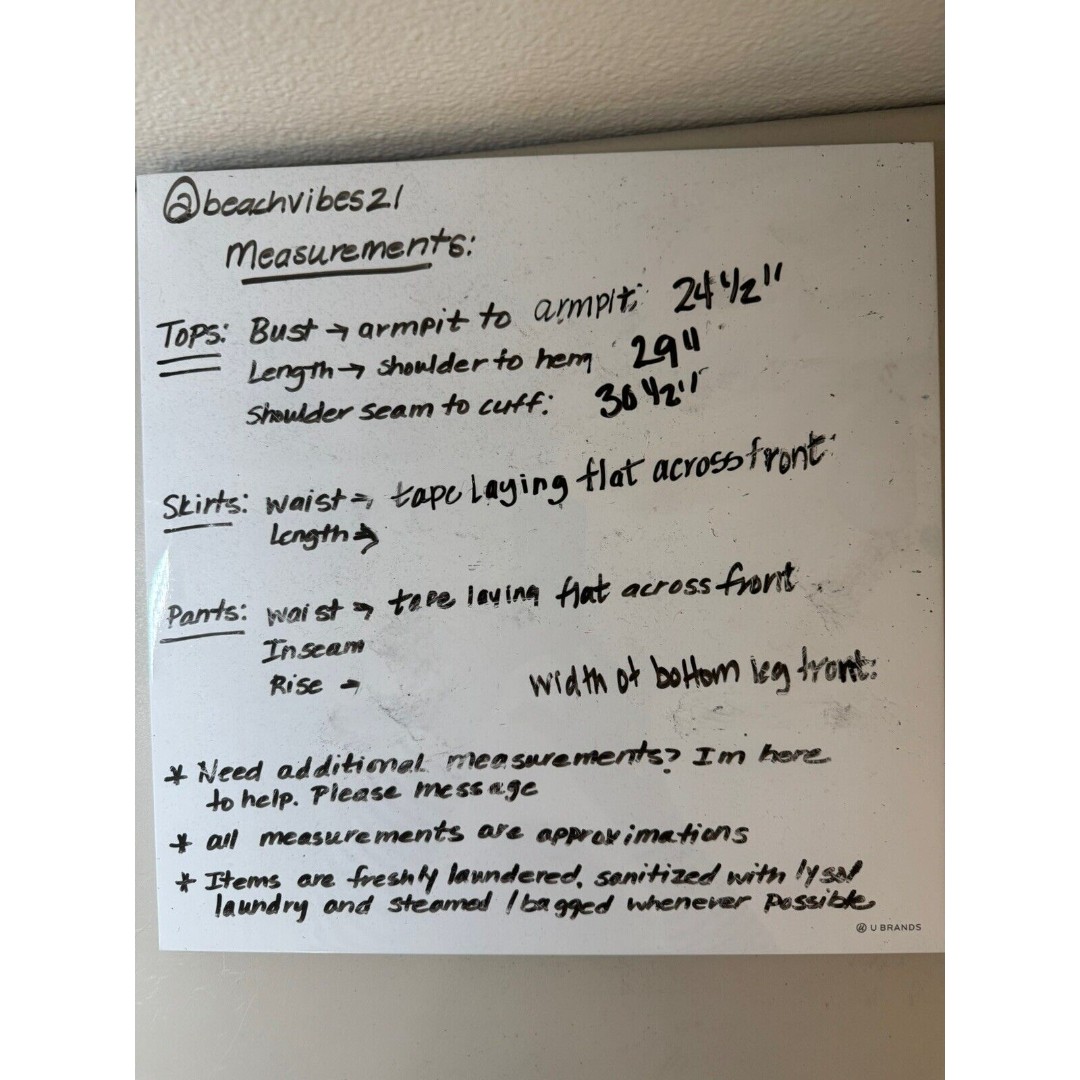 @beachvibes21
Measurements:
Tops: Bust → armpit to armpit: 24 1/2"
Length → shoulder to hem 29"
Shoulder seam to cuff: 30 1/2"
Skirts: waist → tape laying flat across front:
Length →
Pants: waist → tape laying flat across front
Inseam
Rise → width of bottom leg front:
* Need additional measurements? Im here
to help. Please message
* all measurements are approximations
* Items are freshly laundered, sanitized with lysol
laundry and steamed / bagged whenever possible
U BRANDS